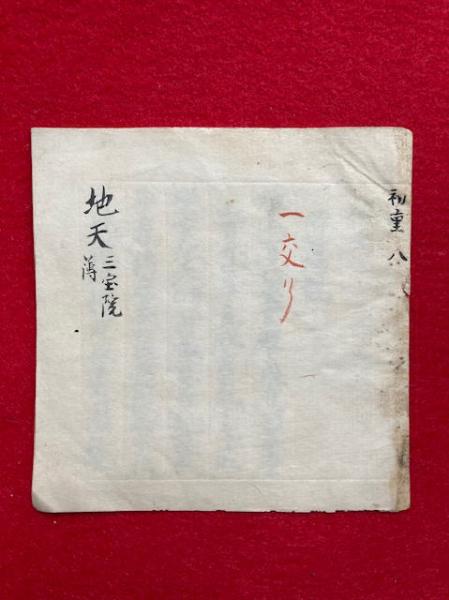 初重 八
一交了
地天 三宝院
薄